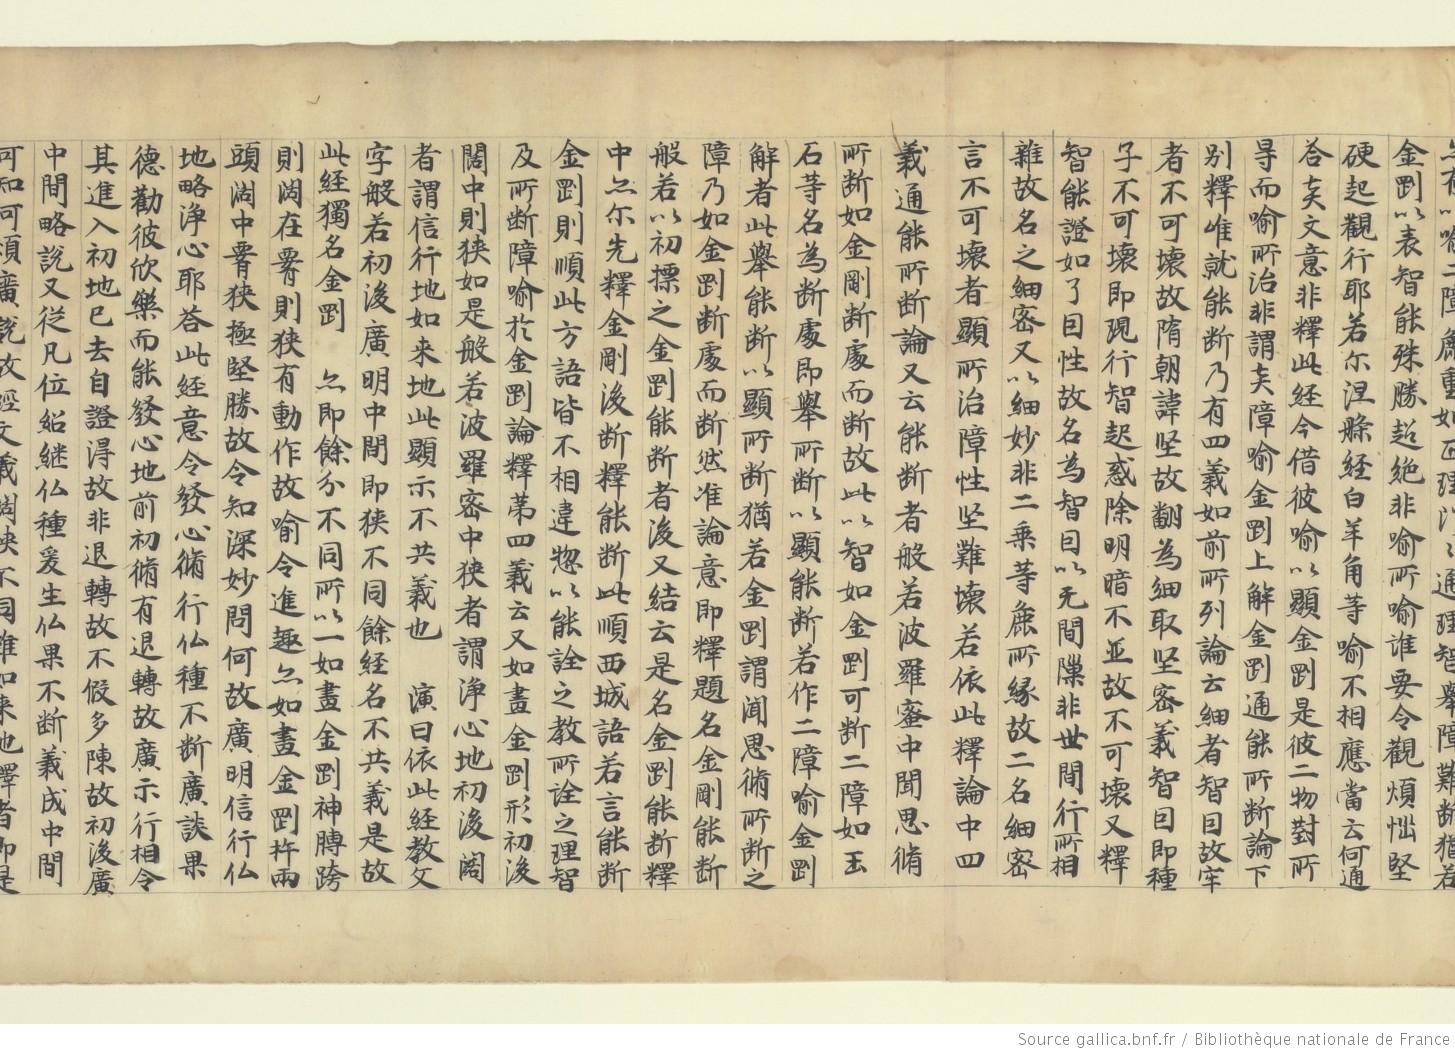 金剛以表智能殊勝超絕非喻所喻誰要令觀煩惱堅
硬起觀行耶若尔涅槃経白羊角等喻不相應當云何通
荅夫文意非釋此経今借彼喻以顯金剛是彼二物對所
㝵而喻所治非謂夫障喻金剛上解金剛通能所断論下
別釋唯就能断乃有四義如前所列論云細者智因故牢
者不可壊故隋朝諱坚故翻為細取坚密義智因即種
子不可壊即現行智起惑除明暗不並故不可壊又釋
智能證如了因性故名為智因以无間隟非世間行所相
雜故名之細密又以細妙非二乗等麁所縁故二名細密
言不可壊者顯所治障性坚難壊若依此釋論中四
義通能所断論又云能断者般若波羅蜜中聞思脩
所断如金剛断處而断故此以智如金剛可断二障如玉
石等名為断處即舉所断以顯能断若作二障喻金剛
解者此舉能断以顯所断猶若金剛謂聞思脩所断之
障乃如金剛断處而断然准論意即釋題名金剛能断
般若以初摽之金剛能断者後又結云是名金剛能断釋
中亽尔先釋金剛後断釋能断此順西城語若言能断
金剛則順此方語皆不相違惣以能詮之教所詮之理智
及所断障喻於金剛論釋苐四義云又如畫金剛形初後
闊中則狭如是般若波羅密中狭者謂浄心地初後闊
者謂信行地如来地此顯示不共義也 演曰依此経教文
字般若初後廣明中間即狭不同餘経名不共義是故
此経獨名金剛 亽即餘分不同所以一如畫金剛神膊跨
則闊在䏿則狭有動作故喻令進趣亽如畫金剛杵兩
頭闊中䏿狭極堅勝故令知深妙問何故廣明信行仏
地略浄心耶荅此経意令發心脩行仏種不断廣談果
德勸彼欣樂而能發心地前初脩有退轉故廣示行相令
其進入初地已去自證得故非退轉故不假多陳故初後廣
中間略說又從凡位紹継仏種爰生仏果不断義成中間
可知何須廣說故経文義闊狭不同雖如来地釋者即是